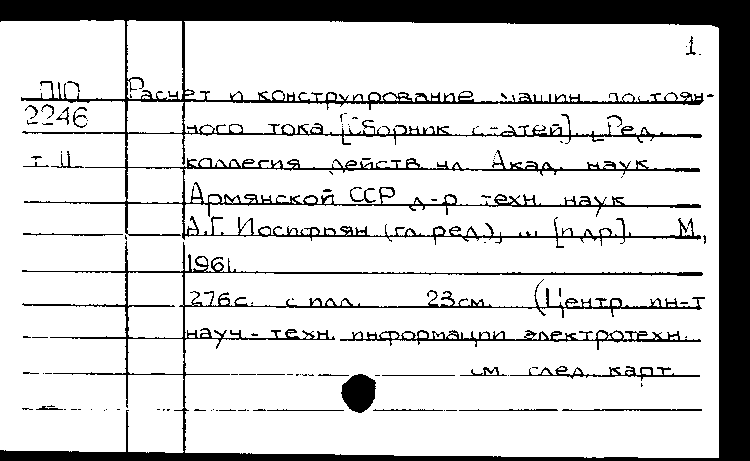 1.
П10 Расчет и конструирование машин постоян-
2246 ного тока. [Сборник статей]. Ред.
т. 11 коллегия: действ. чл. Акад. наук
Армянской ССР д-р техн. наук
А.Г. Иосифьян (гл. ред.), ... [и др.]. М.,
1961.
276с. с илл. 23см. (Центр. ин-т
науч.-техн. информации электротехн.
см. след. карт.